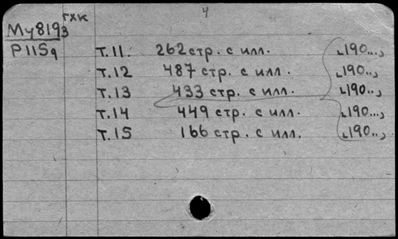 ГХК 4
Му8193
P11S9 т.11. 262 стр. с илл. ⌞190..,
т.12 487 стр. с илл. ⌞190..,
т.13 433 стр. с илл. ⌞190..,
т.14 449 стр. с илл. ⌞190...,
т.15 166 стр. с илл. ⌞190..,